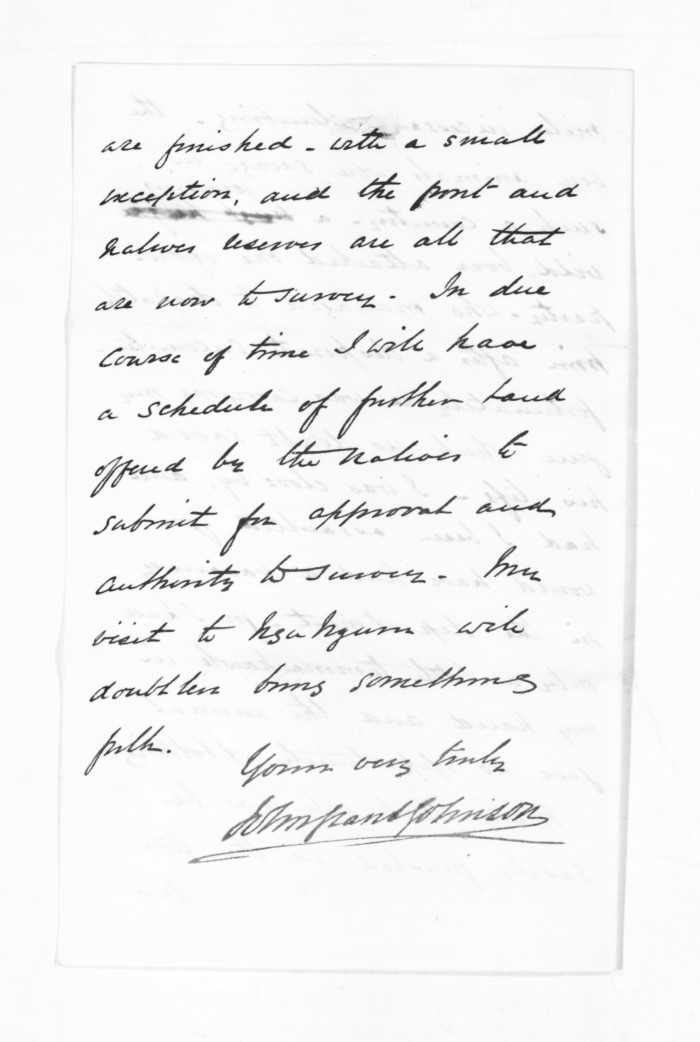 are finished - with a small
exception, and the port and
natives reserves are all that
are now to survey. In due
course of time I will have
a schedule of further land
offered by the natives to
submit for approval and
authority to survey. My
visit to Nga Nguru will
doubtless bring something
forth.
Yours very truly
John Grant Johnson